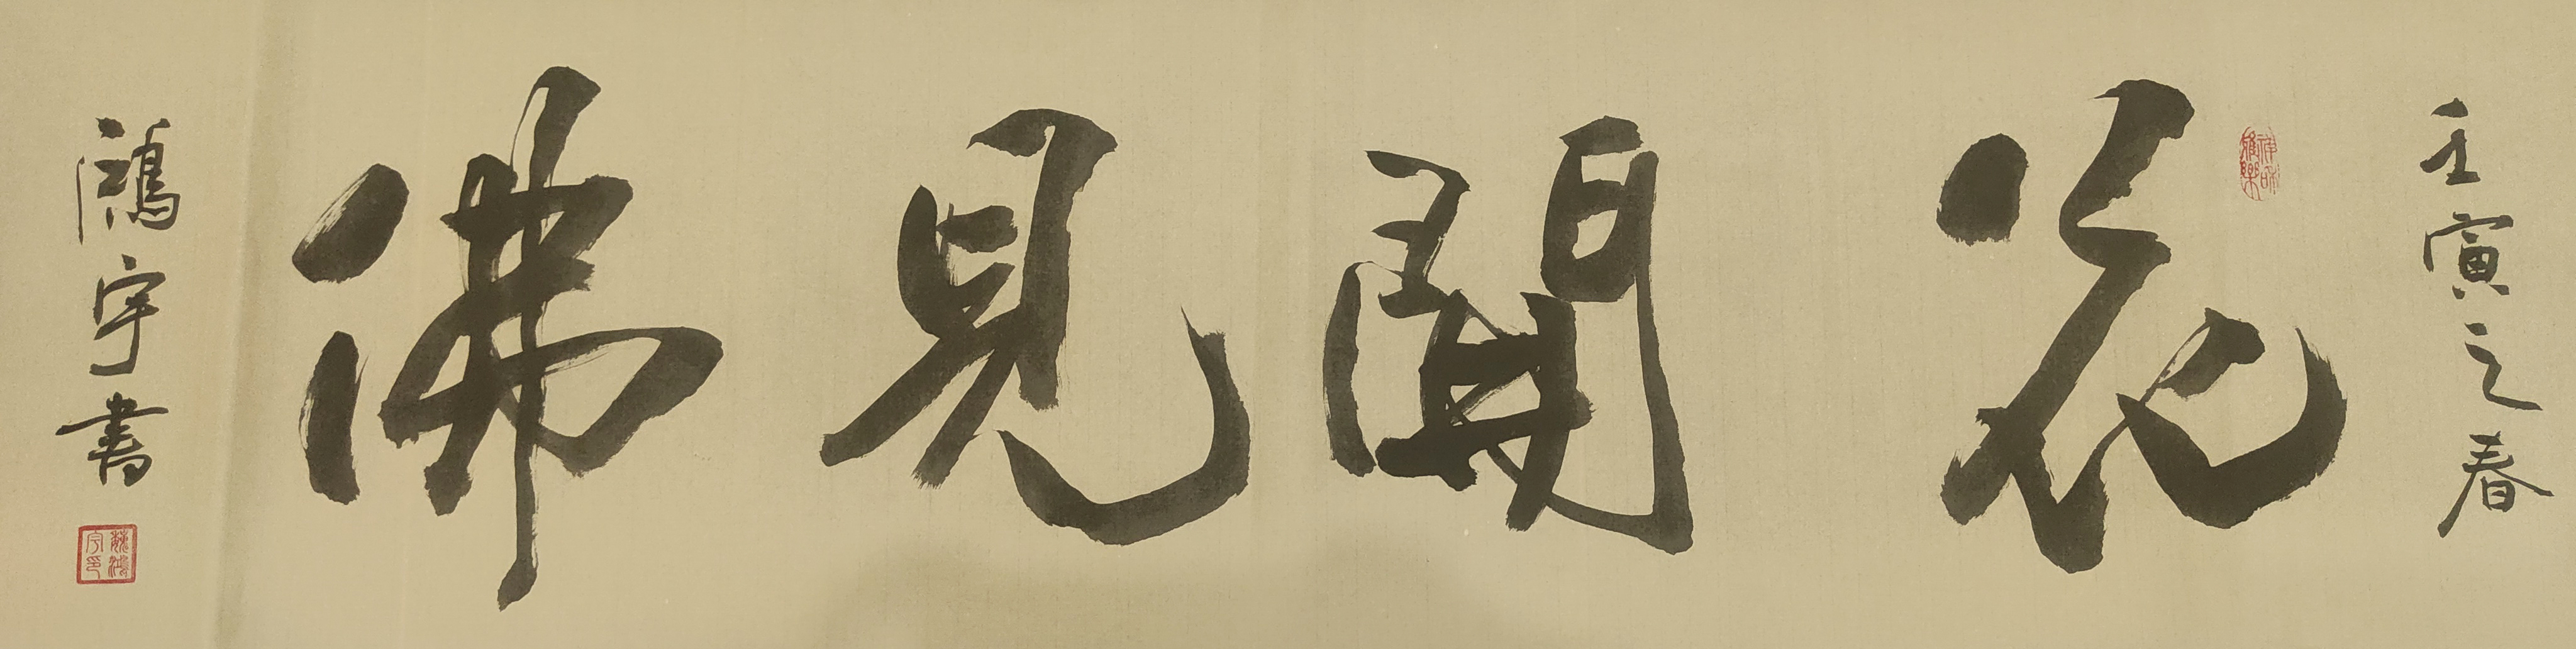 壬寅之春
花開見佛
鴻宇書